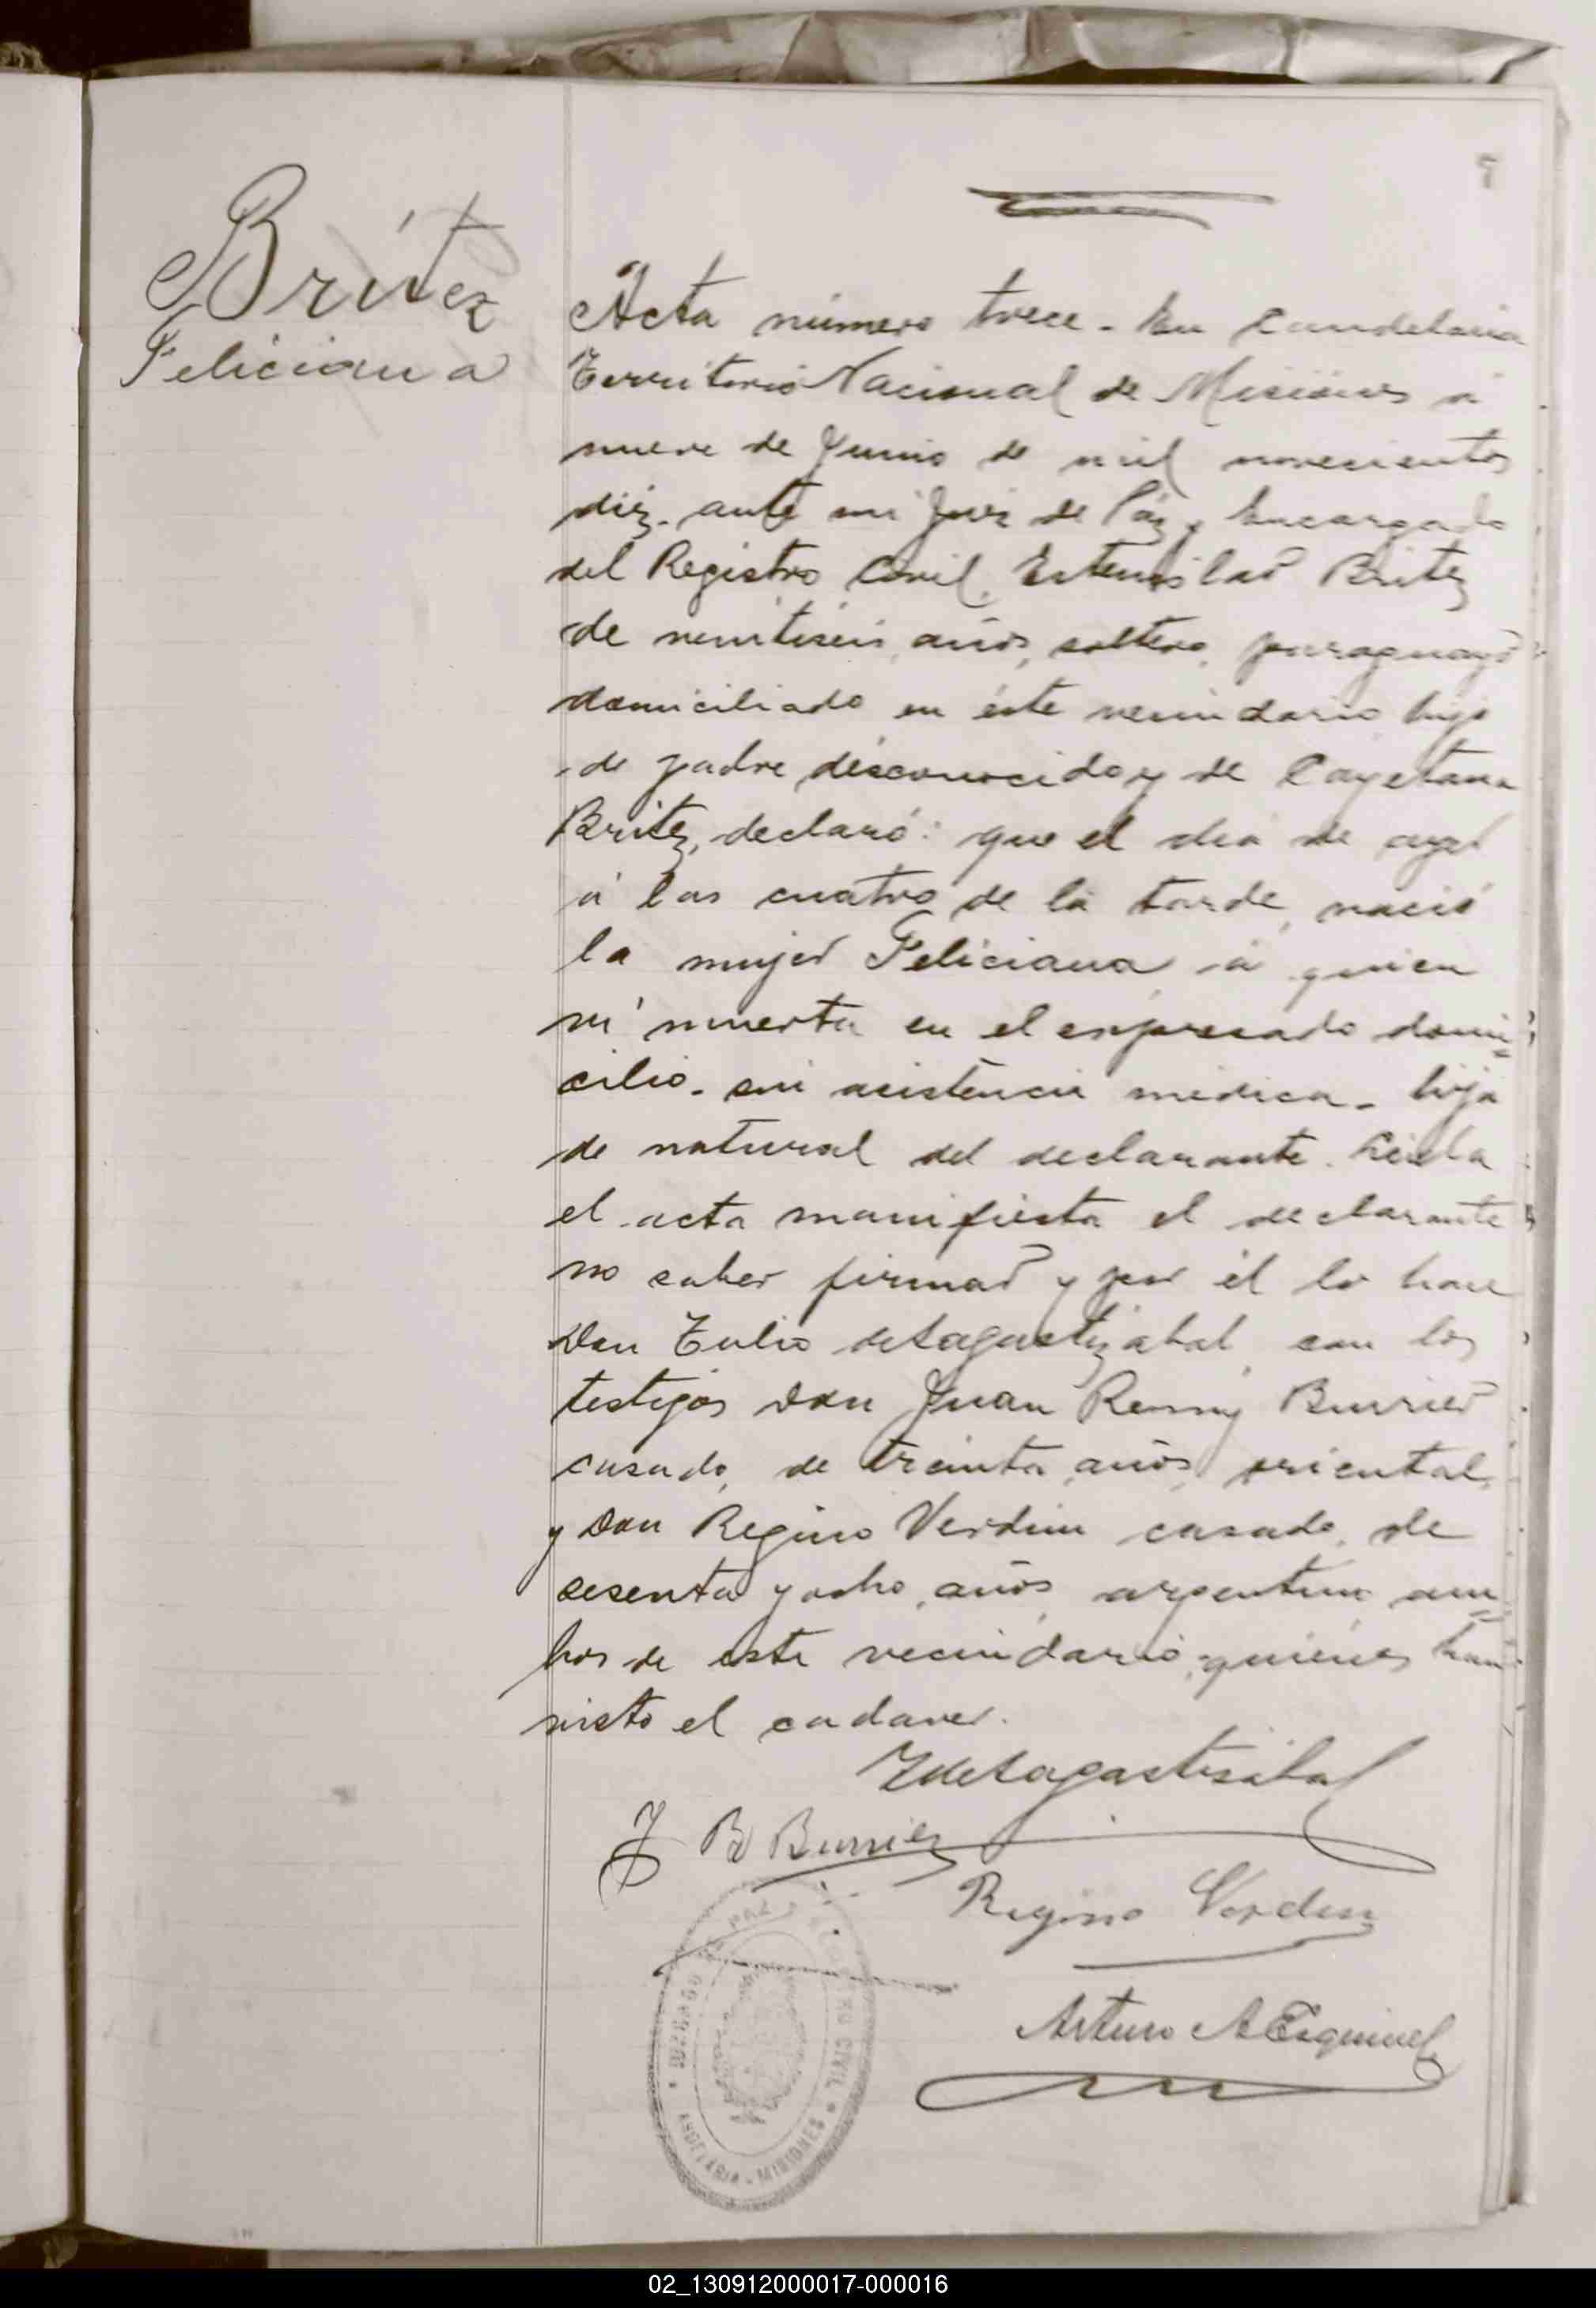 Britez
Feliciana
Acta número trece. En Candelaria
Territorio Nacional de Misiones á
nueve de Junio de mil novecientos
diez. ante mi Juez de Páz y Encargado
del Registro Civil, Britez
de veintiseis años, soltero, paraguayo
domiciliado en éste vecindario hijo
de padre desconocido y de Cayetana
Britez, declaró: que el dia de ayer
á las cuatro de la tarde, nació
la mujer Feliciana á quien
ví muerta en el expresado domi=
cilio. sin asistencia médica. hija
de natural del declarante. Leida
el acta manifiesta el declarante
no saber firmar y por él lo hace
Don Tulio de Lagastizabal con los
testigos Don Juan Burrier
casado, de treinta años, oriental,
y Don Regino Verdun casado, de
sesenta y ocho años, argentino am=
bos de este vecindario, quienes han
visto el cadaver.
T de Lagastizabal
J B Burrier
Regino Verdun
Arturo A Esquivel
JUZGADO DE PAZ Y REGISTRO CIVIL
CANDELARIA - MISIONES
02_130912000017-000016